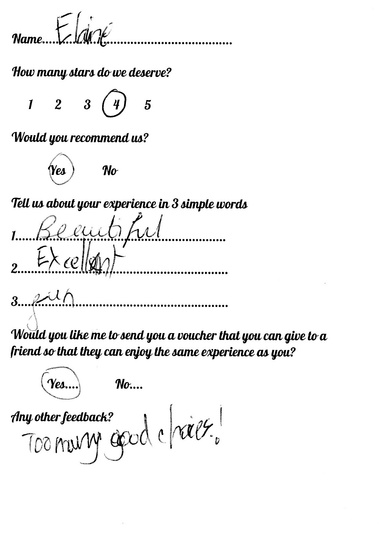 Name....Elaine....
How many stars do we deserve?
1 2 3 4 5
Would you recommend us?
Yes No
Tell us about your experience in 3 simple words
1....Beautiful....
2....Excellent....
3....fun....
Would you like me to send you a voucher that you can give to a
friend so that they can enjoy the same experience as you?
Yes.... No....
Any other feedback?
Too many good choices!